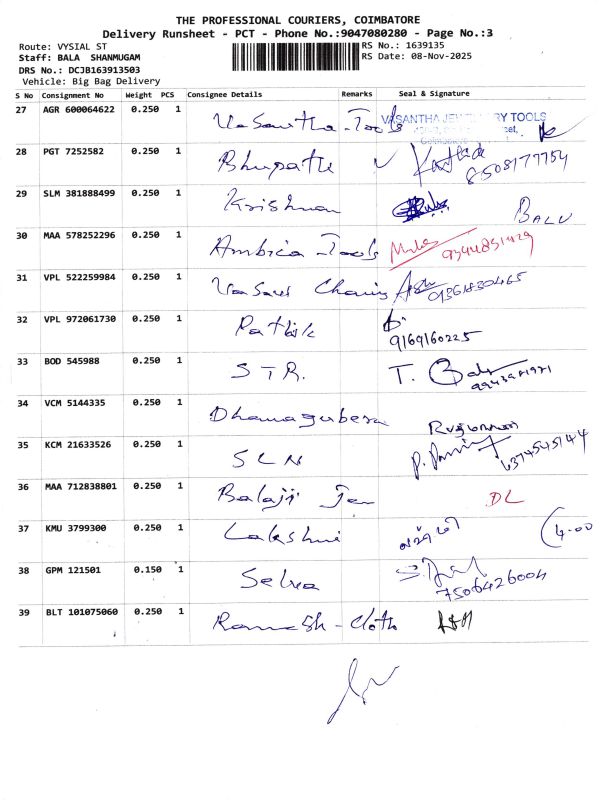 THE PROFESSIONAL COURIERS, COIMBATORE
Delivery Runsheet - PCT - Phone No.:9047080280 - Page No.:3
Route: VYSIAL ST RS No.: 1639135
Staff: BALA SHANMUGAM RS Date: 08-Nov-2025
DRS No.: DCJB163913503
Vehicle: Big Bag Delivery
S No Consignment No Weight PCS Consignee Details Remarks Seal & Signature
27 AGR 600064622 0.250 1 Vasantha Tools VASANTHA JEWELLERY TOOLS
28 PGT 7252582 0.250 1 Bhupathi ✓ Karthick
8508177754
29 SLM 381888499 0.250 1 Krishnan BALU
30 MAA 578252296 0.250 1 Ambica Tools
31 VPL 522259984 0.250 1 Vasavi Chains
32 VPL 972061730 0.250 1
9169160225
33 BOD 545988 0.250 1 STR. T.
34 VCM 5144335 0.250 1
35 KCM 21633526 0.250 1 SLN
6374545144
36 MAA 712838801 0.250 1 Balaji DL
37 KMU 3799300 0.250 1 Lakshmi 4.00
38 GPM 121501 0.150 1 Selva
7506426004
39 BLT 101075060 0.250 1 Ramesh - Cloth